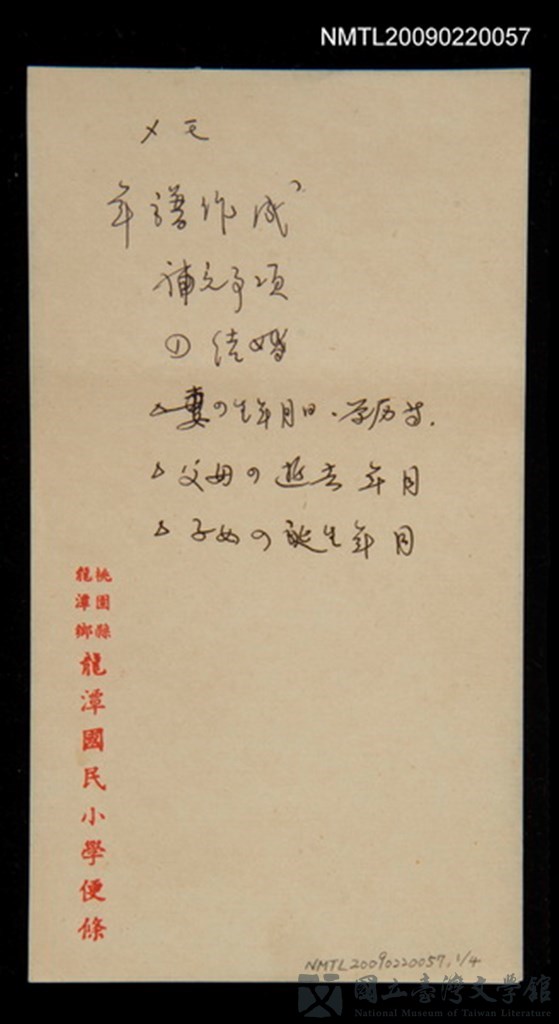 NMTL20090220057
メモ
年譜作成
補充事項
① 结婚
△妻の生年月日、学历等.
△父母の逝去年月
△子女の誕生年月
桃園縣
龍潭鄉
龍潭國民小學便條
NMTL20090220057, 1/4
國立臺灣文學館
National Museum of Taiwan Literature